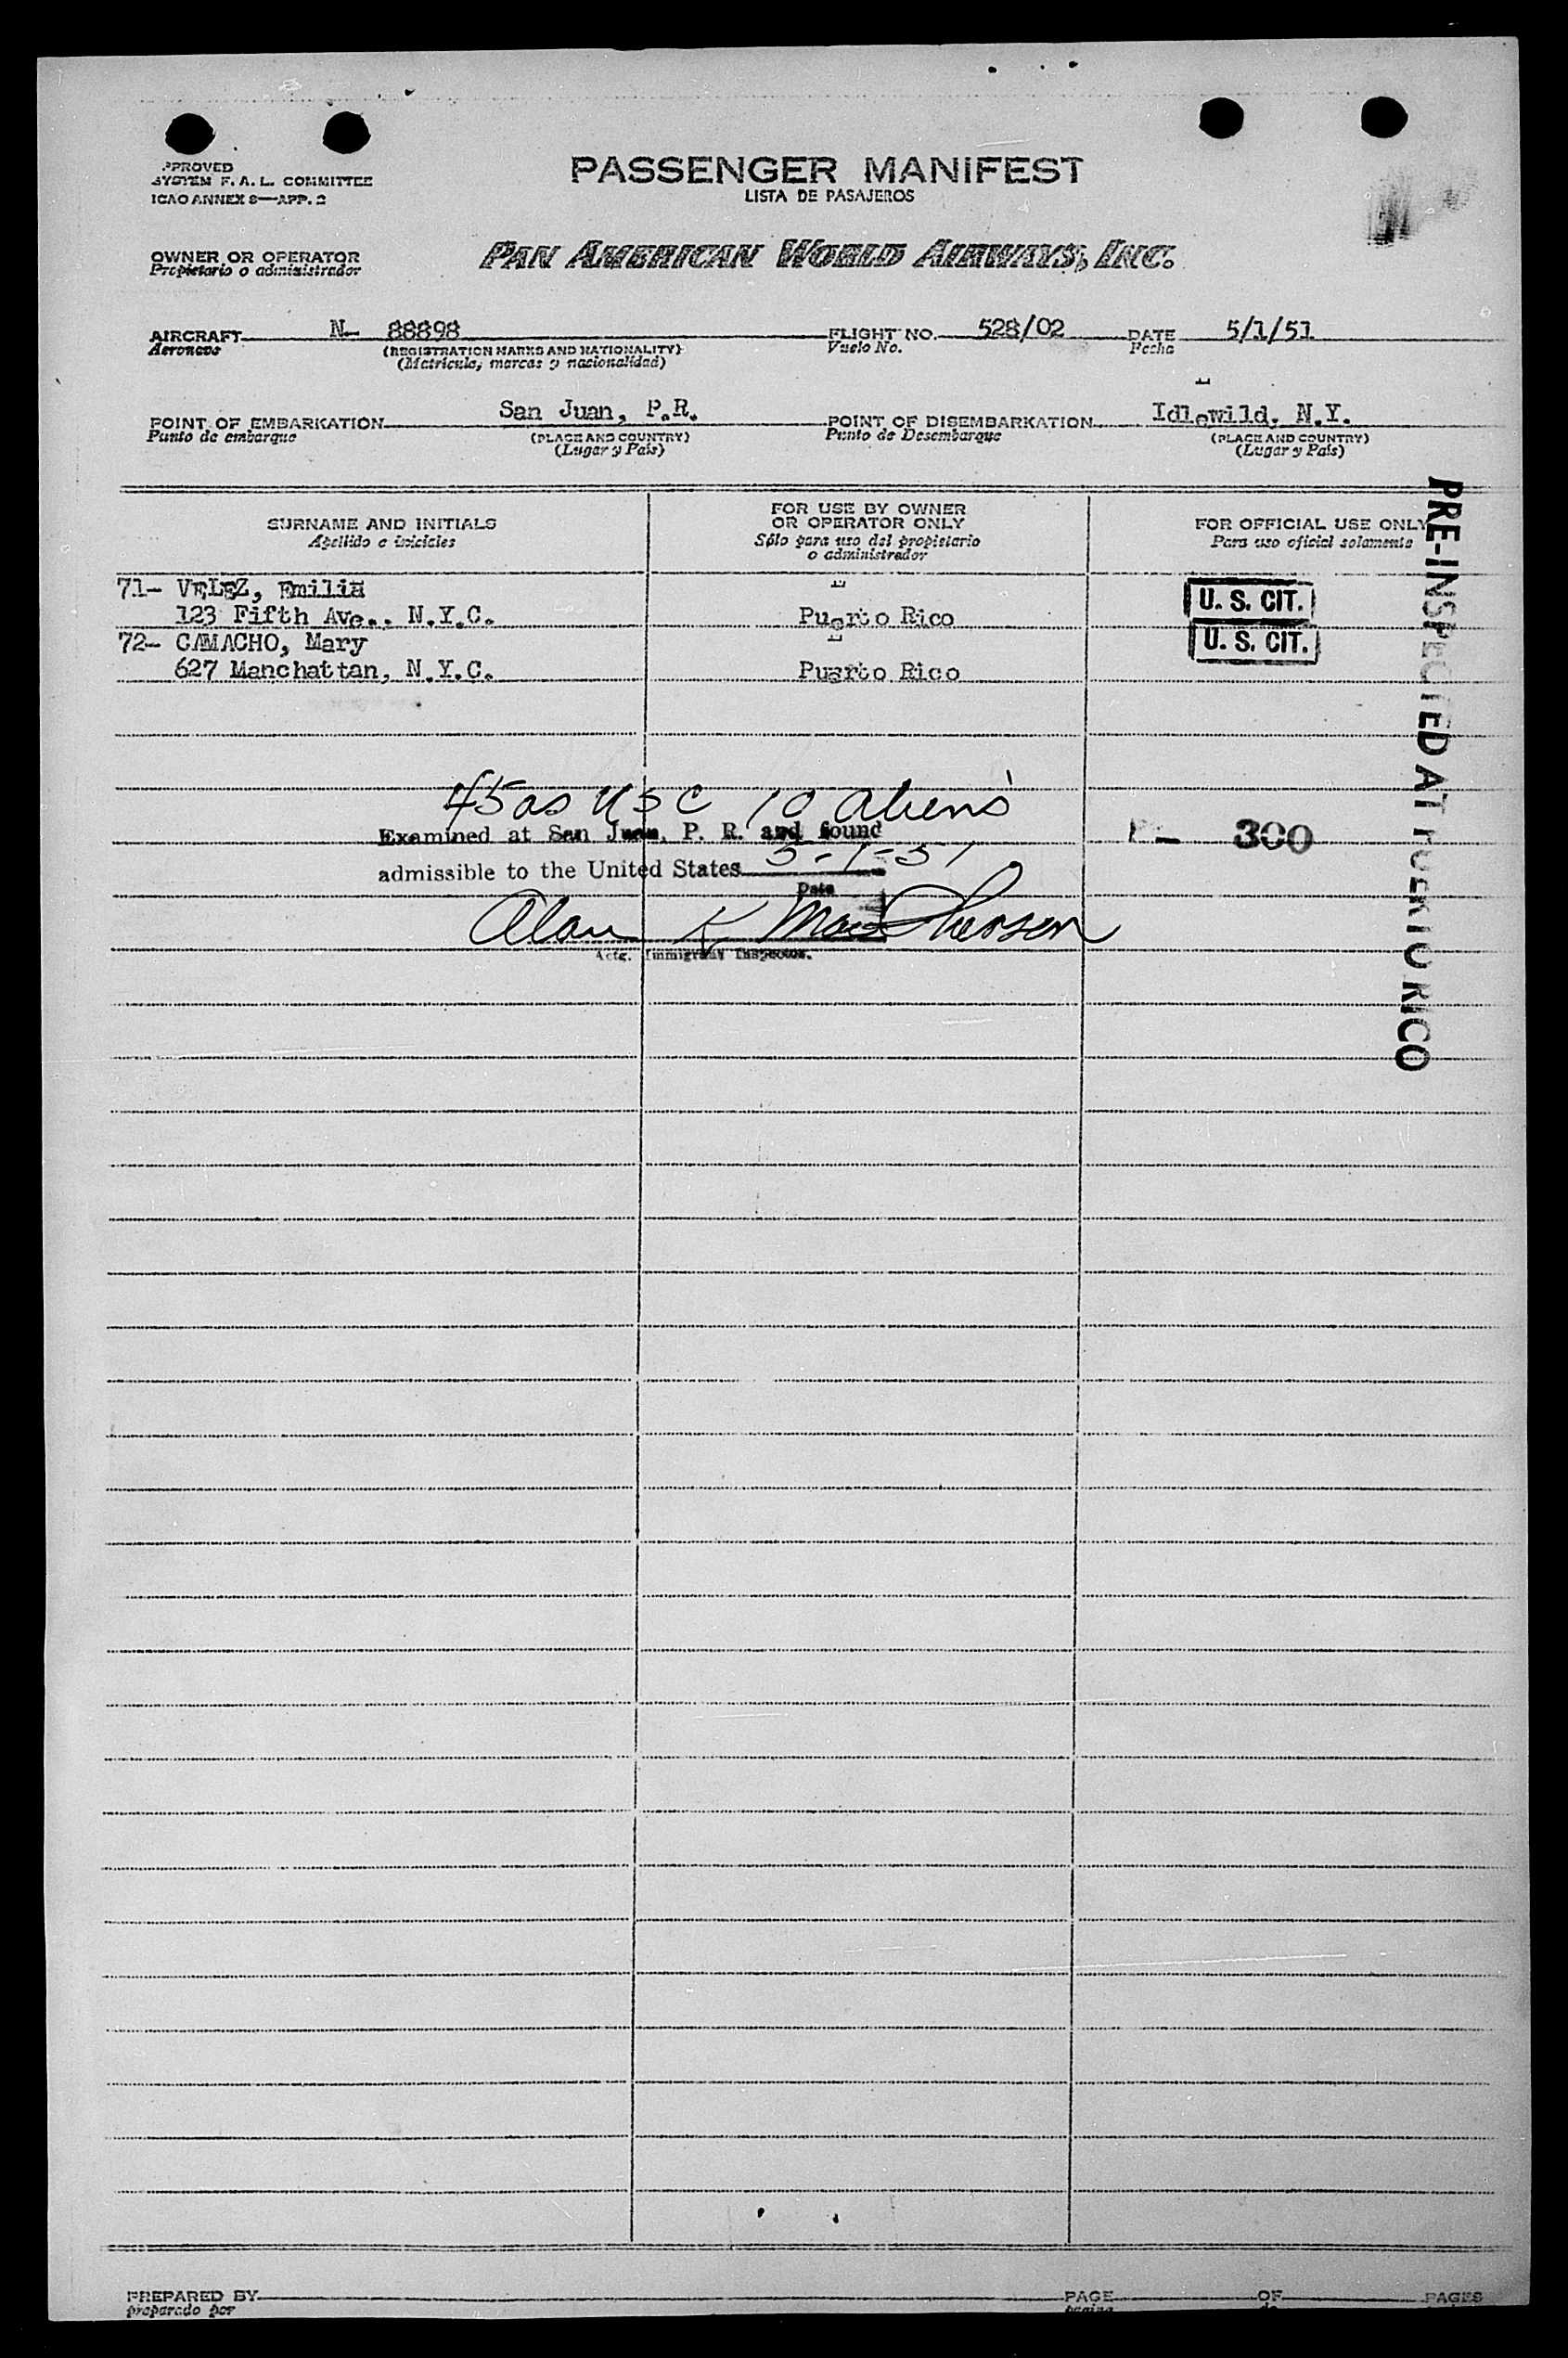 PPROVED
SYSTEM F. A. L. COMMITTEE
ICAO ANNEX 9—APP. 2
PASSENGER MANIFEST
LISTA DE PASAJEROS
OWNER OR OPERATOR
Propietario o administrador
PAN AMERICAN WORLD AIRWAYS, INC.
AIRCRAFT N- 88898 FLIGHT NO. 528/02 DATE 5/1/51
Aeronave (REGISTRATION MARKS AND NATIONALITY) Vuelo No. Fecha
(Matricula, marcas y nacionalidad)
POINT OF EMBARKATION San Juan, P.R. POINT OF DISEMBARKATION Idlewild, N.Y.
Punto de embarque (PLACE AND COUNTRY) Punto de Desembarque (PLACE AND COUNTRY)
(Lugar y País) (Lugar y País)
SURNAME AND INITIALS
Apellido e iniciales
FOR USE BY OWNER
OR OPERATOR ONLY
Sólo para uso del propietario
o administrador
FOR OFFICIAL USE ONLY
Para uso oficial solamente
71- VELEZ, Emilia
123 Fifth Ave., N.Y.C. Puerto Rico U. S. CIT.
72- CAMACHO, Mary U. S. CIT.
627 Manchattan, N.Y.C. Puerto Rico
PRE-INSPECTED AT PUERTO RICO
45 as USC 10 aliens
Examined at San Juan, P. R. and found
admissible to the United States 5-1-51
Date
300
Alan K MacPherson
Actg. Immigrant Inspector.
PREPARED BY PAGE OF PAGES
preparado por pagina de